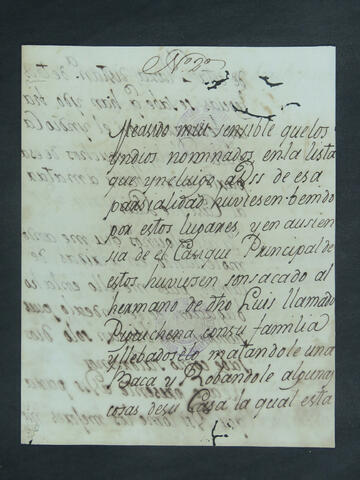 N.º 2.º
Me asido mui sensible que los
yndios nominados en la lista
que yncluigo a Uss de esa
parsialidad huviesen benido
por estos lugares, y en ausien
sia de el Casique Principal de
estos huviesen sonsacado al
hermano de dho Luis llamado
con su familia
y llebadoselo matandole una
Baca y Robandole algunas
cosas de su Casa la qual esta